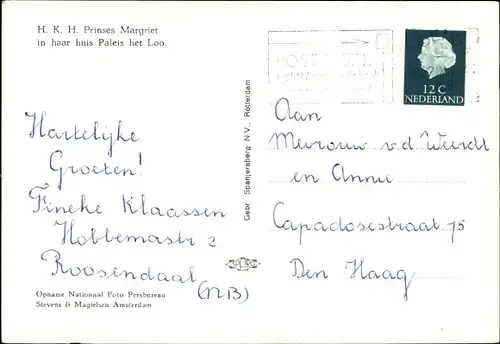 H. K. H. Prinses Margriet
in haar huis Paleis het Loo.
Hartelijke
Groeten!
Fineke Klaassen
Hobbemastr 2
Roosendaal
(NB)
Opname Nationaal Foto Persbureau
Stevens & Magielsen Amsterdam
Gebr. Spanjersberg N.V., Rotterdam
12 C
NEDERLAND
Aan
Mevrouw v.d Weerdt
en Annie
Capadosestraat 75
Den Haag